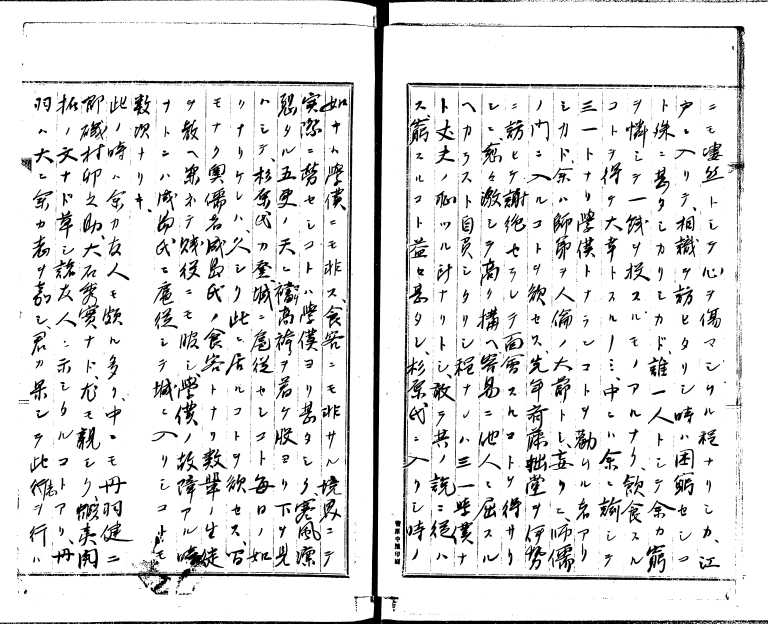 ニモ凄然トシテ心ヲ傷マシムル程ナリシカ、江
戸ニ入リテ、相識ヲ訪ヒタリシ時ハ困窮セシコ
ト殊ニ甚タシカリシカド、誰一人トシテ余カ窮
ヲ憐ミテ一銭ヲ投スルモノアルナク、飲食スル
コトヲ得ケ大幸トスルノミ、中ニハ余ニ諭シテ
三一トナリ學僕トナランコトヲ勧ムル者アリ
シカド、余ハ師弟ヲ人倫ノ大節トシ、妄リニ師儒
ノ門ニ入ルコトヲ欲セス、先年斎藤拙堂ヲ伊勢
ニ訪ヒテ謝絶セラレテ面會スルコトヲ得サリ
シニ、愈々激シテ高ク構ヘ容易ニ他人ニ屈ス
ヘカラスト自負シタリシ程ナレハ三一學僕ナ
ト丈夫ノ恥ツル所ナリトシ、敢テ其ノ説ニ従ハ
ス窮スルコト益々甚タシ、杉原氏ニ入リシ時ノ
如キハ學僕ニモ非ス、食客ニモ非サル境界ニテ
實際ニ勞セシコトハ學僕ヨリ甚タシク寒風凛
烈タル五更ノ天ニ高袴ヲ着ケ股ヨリ下ヲ見
ハシテ、杉原氏カ登城ニ扈従セシコト毎日ノ如
リナリケレハ、久シク此ニ居ルコトヲ欲セス、間
モナク奥儒者成島氏ノ食客トナリ数輩ノ生徒
ヲ教ヘ兼ネテ賤役ニモ服シ學僕ノ故障アル時
ナトニハ成島氏ニ扈従シテ城ニ入リシコトモ
数次ナリキ、
此ノ時ハ余カ友人モ頗ル多ク、中ニモ丹羽健二
郎磯村卯之助、大石ナド尤モ親シク、
拓ノ文ナド草シ諸友人ニ示シタルコトアリ、丹
羽ハ大ニ余カ志ヲ嘉シ、君カ果シテ此行ヲ行ハ